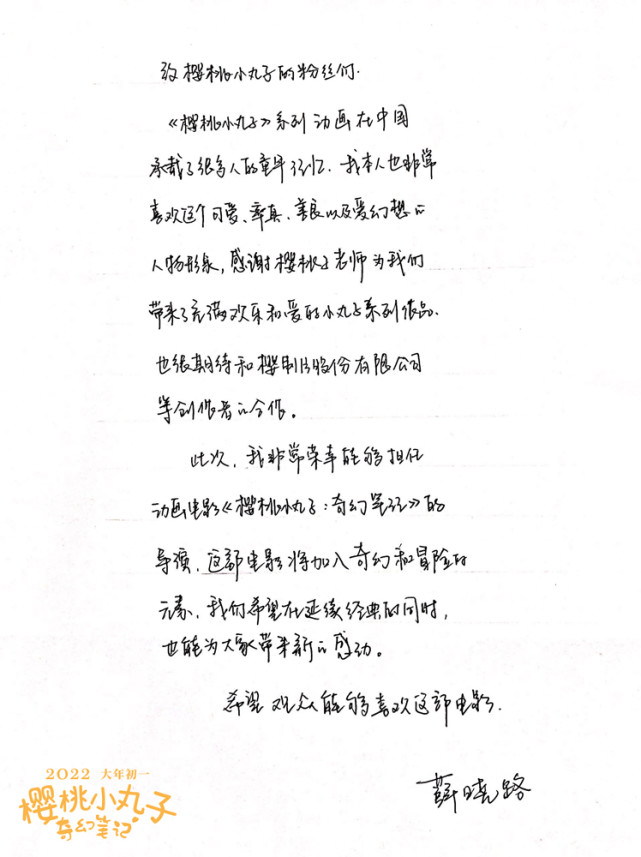 致樱桃小丸子的粉丝们.
《樱桃小丸子》系列动画在中国
承载了很多人的童年记忆. 我本人也非常
喜欢这个可爱、率真、善良以及爱幻想的
人物形象，感谢樱桃子老师为我们
带来了充满欢乐和爱的小丸子系列作品.
也很期待和樱制片股份有限公司
等创作者的合作。
此次，我非常荣幸能够担任
动画电影《樱桃小丸子：奇幻笔记》的
导演，这部电影将加入奇幻和冒险的
元素，我们希望在延续经典的同时，
也能为大家带来新的感动。
希望观众能够喜欢这部电影.
薛晓路
2022 大年初一
樱桃小丸子
奇幻笔记